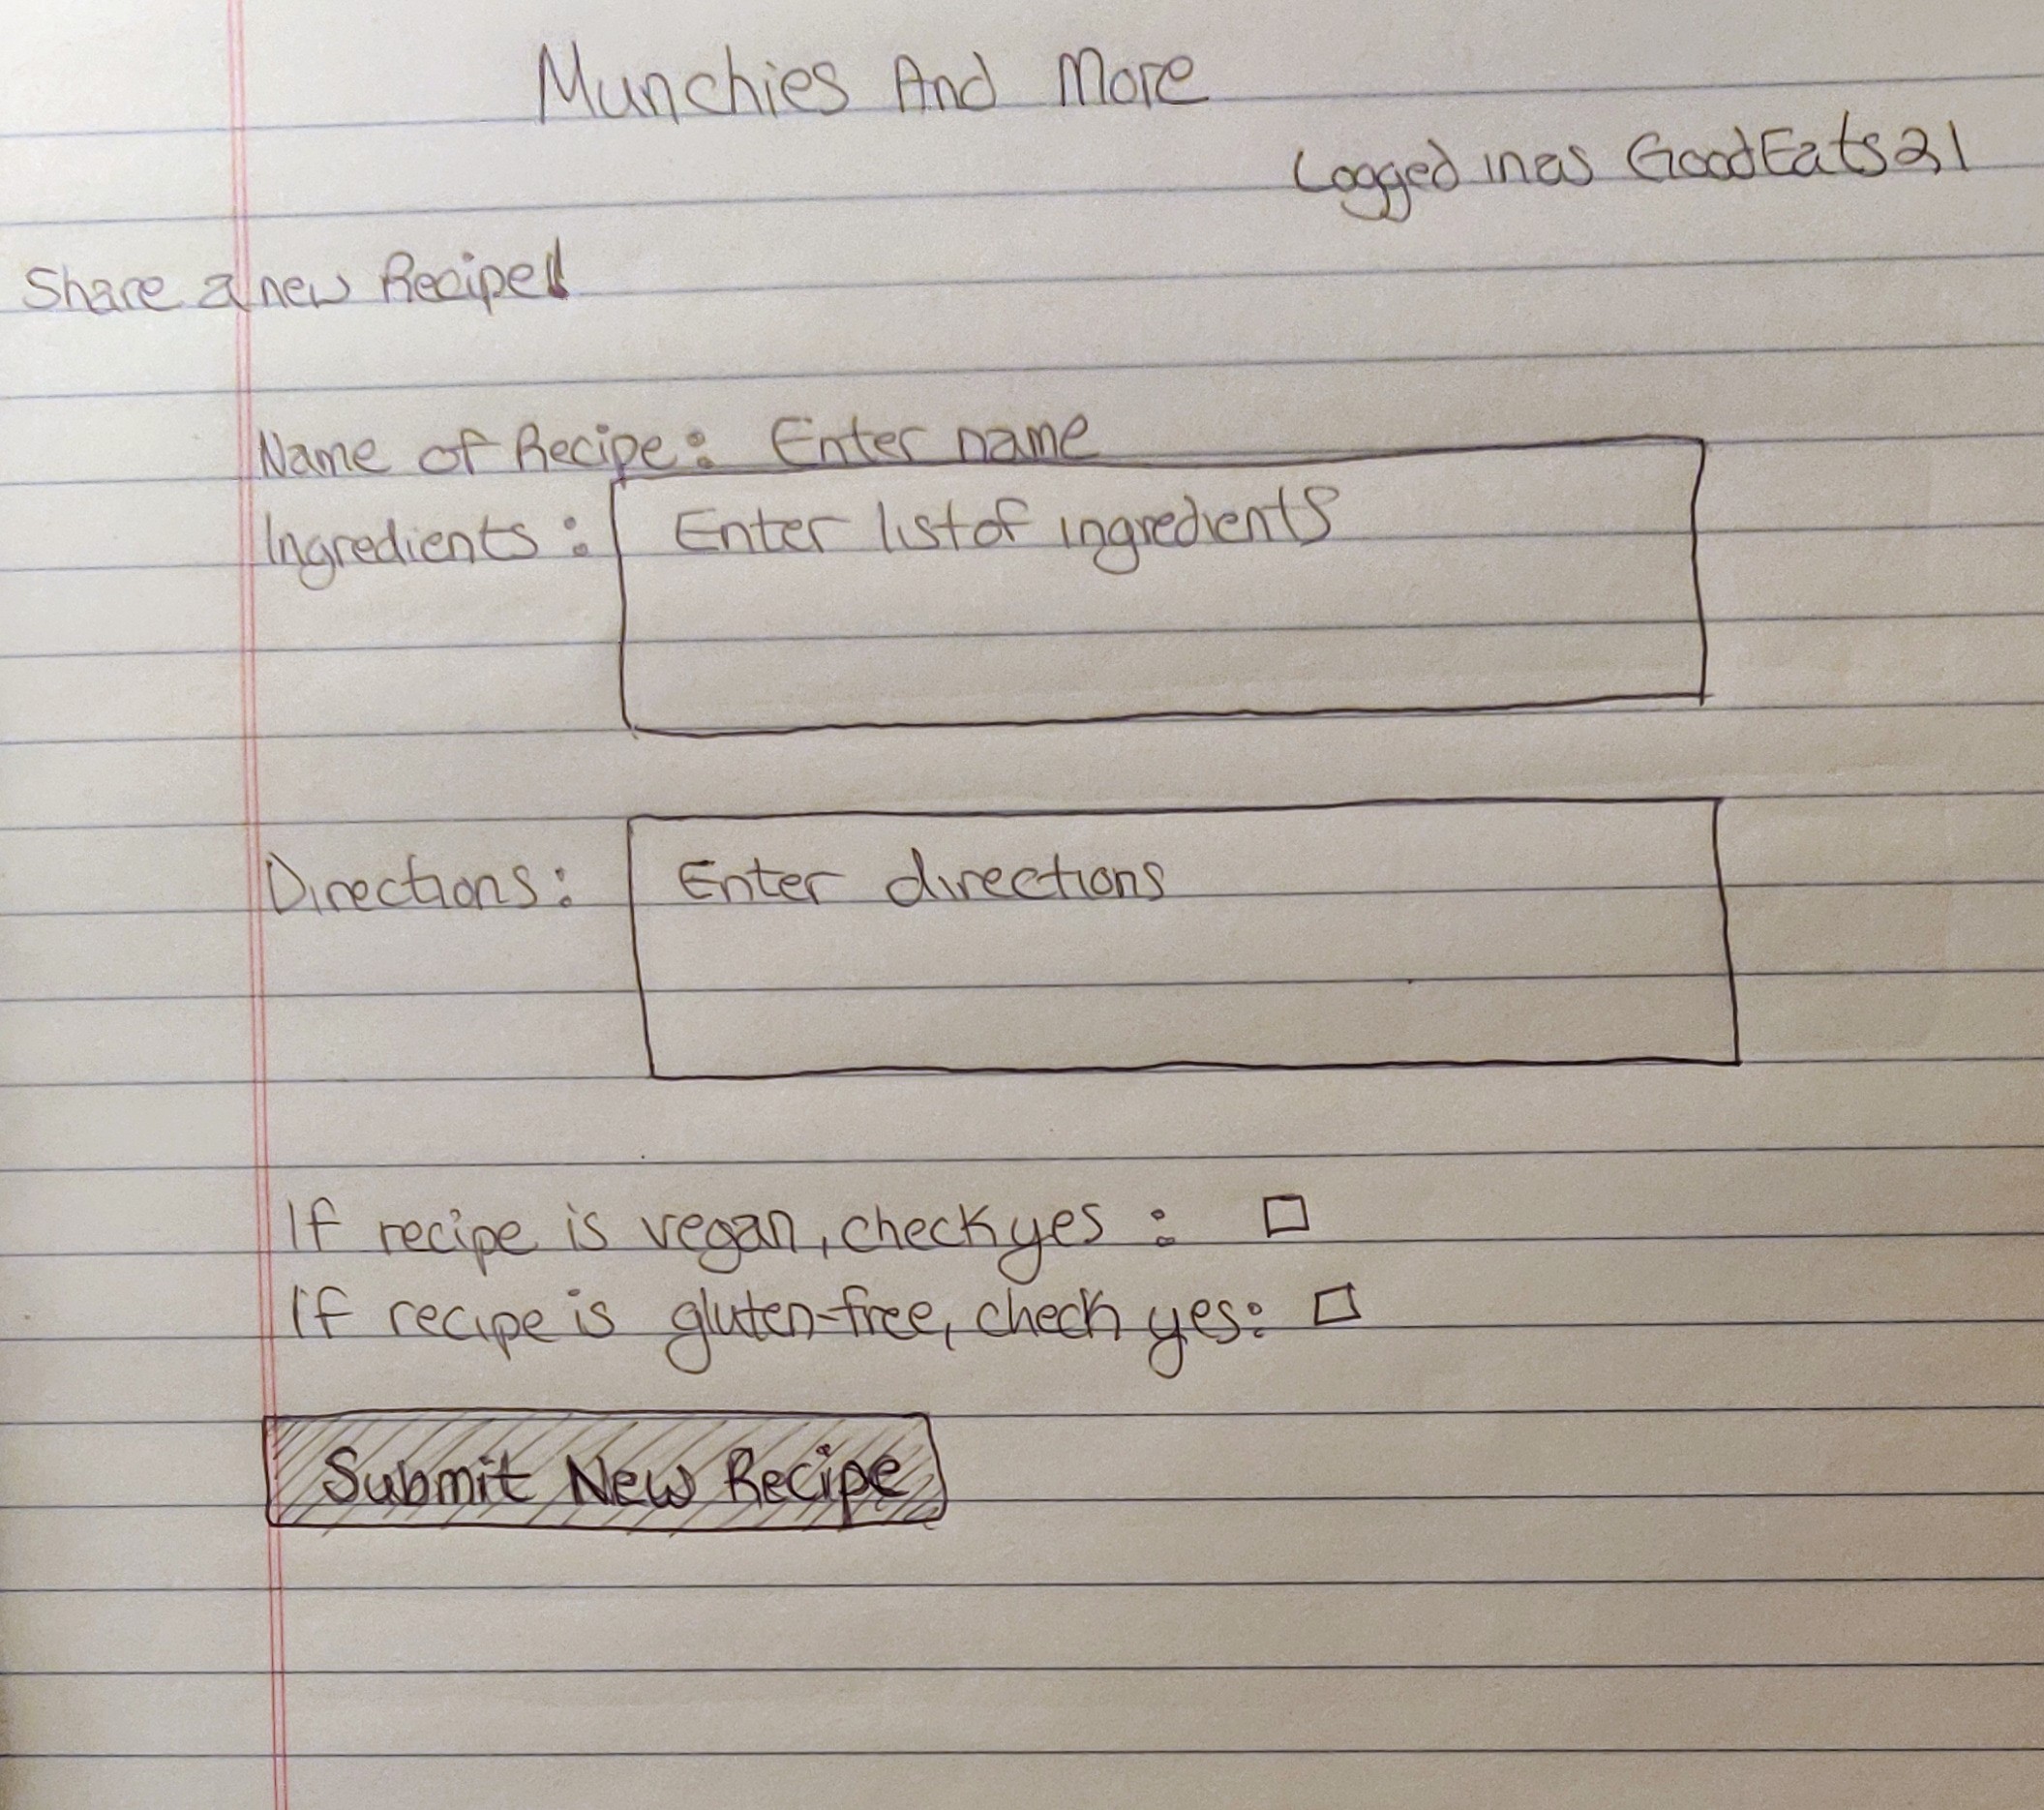 Munchies And More
Logged in as GoodEats21
Share a new Recipe!
Name of Recipe: Enter name
Ingredients: Enter list of ingredients
Directions: Enter directions
If recipe is vegan, check yes:
If recipe is gluten-free, check yes:
Submit New Recipe